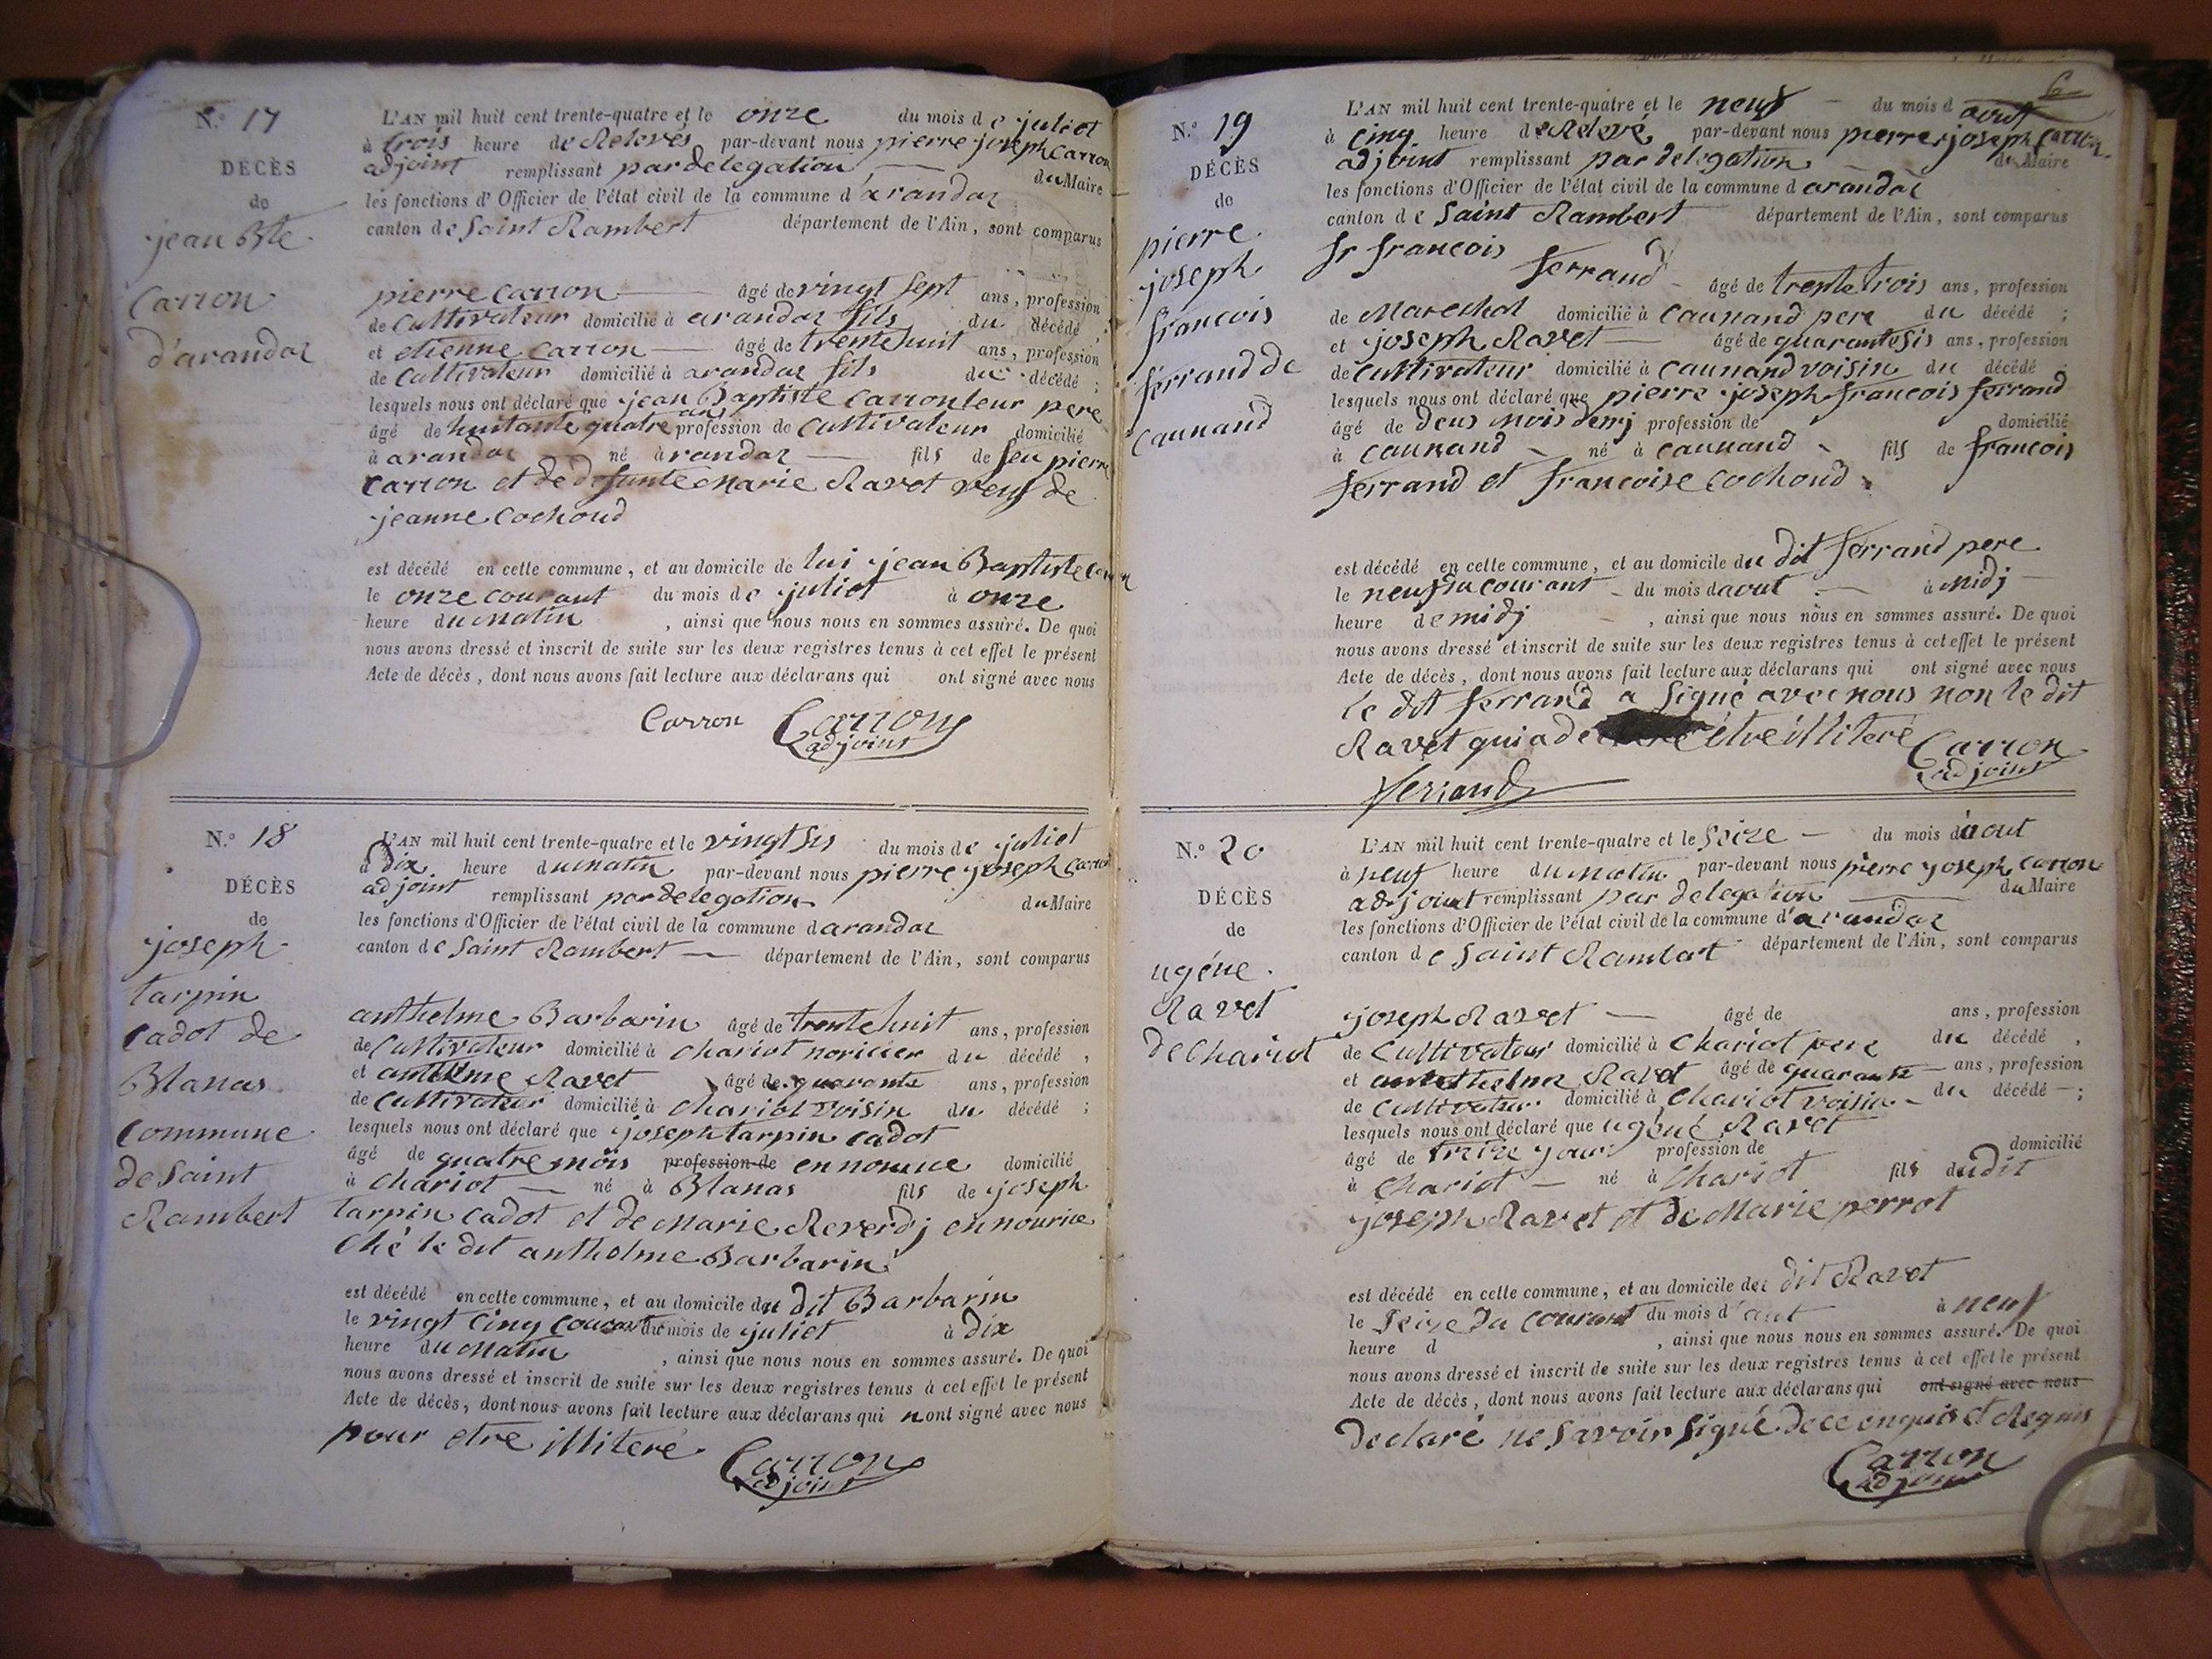 N.º 17
DÉCÈS
de
jean Bte
Carron
d'arandaz
L'AN mil huit cent trente-quatre et le onze du mois de juliet
à trois heure de Relevés par-devant nous pierre joseph Carron
adjoint remplissant par delegation du Maire
les fonctions d'Officier de l'état civil de la commune d'arandaz
canton de Saint Rambert département de l'Ain, sont comparus
pierre Carron âgé de vingt sept ans, profession
de Cultivateur domicilié à arandaz fils du décédé ;
et etienne Carron âgé de trente huit ans, profession
de Cultivateur domicilié à arandaz fils du décédé ;
lesquels nous ont déclaré que jean Baptiste Carron leur pere
âgé de huitante quatre ans profession de Cultivateur domicilié
à arandaz né à arandaz fils de feu pierre
Carron et de defunte Marie Ravet veuf de
jeanne Cochoud
est décédé en cette commune, et au domicile de lui jean Baptiste Carron
le onze courant du mois de juliet à onze
heure du Matin , ainsi que nous nous en sommes assuré. De quoi
nous avons dressé et inscrit de suite sur les deux registres tenus à cet effet le présent
Acte de décès, dont nous avons fait lecture aux déclarans qui ont signé avec nous
Carron Carron
adjoint
N.º 18
DÉCÈS
de
joseph
tarpin
Cadot de
Blanas
Commune
de Saint
Rambert
L'AN mil huit cent trente-quatre et le vingt sis du mois de juliet
à dix heure du matin par-devant nous pierre joseph Carron
adjoint remplissant par delegation du Maire
les fonctions d'Officier de l'état civil de la commune d arandaz
canton de Saint Rambert département de l'Ain, sont comparus
anthelme Barbarin âgé de trente huit ans, profession
de Cultivateur domicilié à Chariot noricier du décédé ,
et anthelme Ravet âgé de quarante ans, profession
de Cultivateur domicilié à Chariot voisin du décédé ;
lesquels nous ont déclaré que joseph tarpin cadot
âgé de quatre mois profession de en nourice domicilié
à Chariot né à Blanas fils de joseph
tarpin Cadot et de Marie Reverdj en nourice
ché le dit antholme Barbarin
est décédé en cette commune, et au domicile du dit Barbarin
le vingt Cinq Courant du mois de juliet à dix
heure du Matin , ainsi que nous nous en sommes assuré. De quoi
nous avons dressé et inscrit de suite sur les deux registres tenus à cet effet le présent
Acte de décès, dont nous avons fait lecture aux déclarans qui n ont signé avec nous
pour etre illiteré
Carron
adjoint
6
N.º 19
DÉCÈS
de
pierre
joseph
francois
ferrand de
Caunand
L'AN mil huit cent trente-quatre et le neuf du mois d aout
à cinq heure de Relevé par-devant nous pierre joseph Carron
adjoint remplissant par delegation du Maire
les fonctions d'Officier de l'état civil de la commune d arandaz
canton de Saint Rambert département de l'Ain, sont comparus
Sr francois
ferrand âgé de trente trois ans, profession
de Marechal domicilié à Caunand pere du décédé ;
et joseph Ravet âgé de quarante sis ans, profession
de Cultivateur domicilié à Caunand voisin du décédé
lesquels nous ont déclaré que pierre joseph francois ferrand
âgé de deus mois demj profession de domicilié
à Caunand né à Caunand fils de francois
ferrand et francoise Cochoud
est décédé en cette commune, et au domicile du dit ferrand pere
le neuf du courant du mois d aout à Midj
heure de midj , ainsi que nous nous en sommes assuré. De quoi
nous avons dressé et inscrit de suite sur les deux registres tenus à cet effet le présent
Acte de décès, dont nous avons fait lecture aux déclarans qui ont signé avec nous
le dit ferrand a signé avec nous non le dit
Ravet qui a être illiteré
Carron
adjoint
ferrand
N.º 20
DÉCÈS
de
ugéne
Ravet
de Chariot
L'AN mil huit cent trente-quatre et le Seize du mois d'aout
à neuf heure du matin par-devant nous pierre joseph Carron
adjoint remplissant par delegation du Maire
les fonctions d'Officier de l'état civil de la commune d'arandaz
canton de Saint Rambert département de l'Ain, sont comparus
joseph Ravet âgé de ans, profession
de Cultivateur domicilié à Chariot pere du décédé ,
et anthelme Ravet âgé de quarante ans, profession
de Cultivateur domicilié à Chariot voisin du décédé ;
lesquels nous ont déclaré que ugéné Ravet
âgé de treize jour profession de domicilié
à Chariot né à Chariot fils dudit
joseph Ravet et de Marie perrot
est décédé en cette commune, et au domicile de dit Ravet
le Seize du courant du mois d'aout à neuf
heure d , ainsi que nous nous en sommes assuré. De quoi
nous avons dressé et inscrit de suite sur les deux registres tenus à cet effet le présent
Acte de décès, dont nous avons fait lecture aux déclarans qui ont signé avec nous
declaré ne savoir signé de ce enquis et Requis
Carron
adjoint